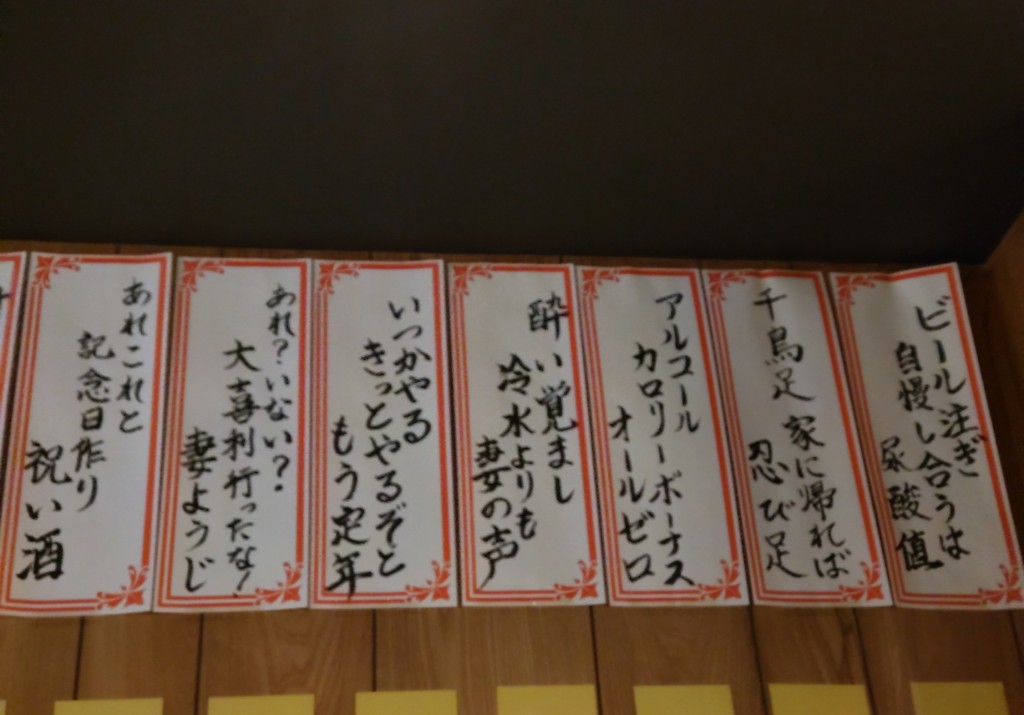 ビール注ぎ
自慢し合うは
尿酸値
千鳥足
家に帰れば
忍び足
アルコール
カロリーボーナス
オールゼロ
酔い覚まし
冷水よりも
妻の声
いつかやる
きっとやるぞと
もう定年
あれ?いない?
大喜利行ったな!
妻ようじ
あれこれと
記念日作り
祝い酒